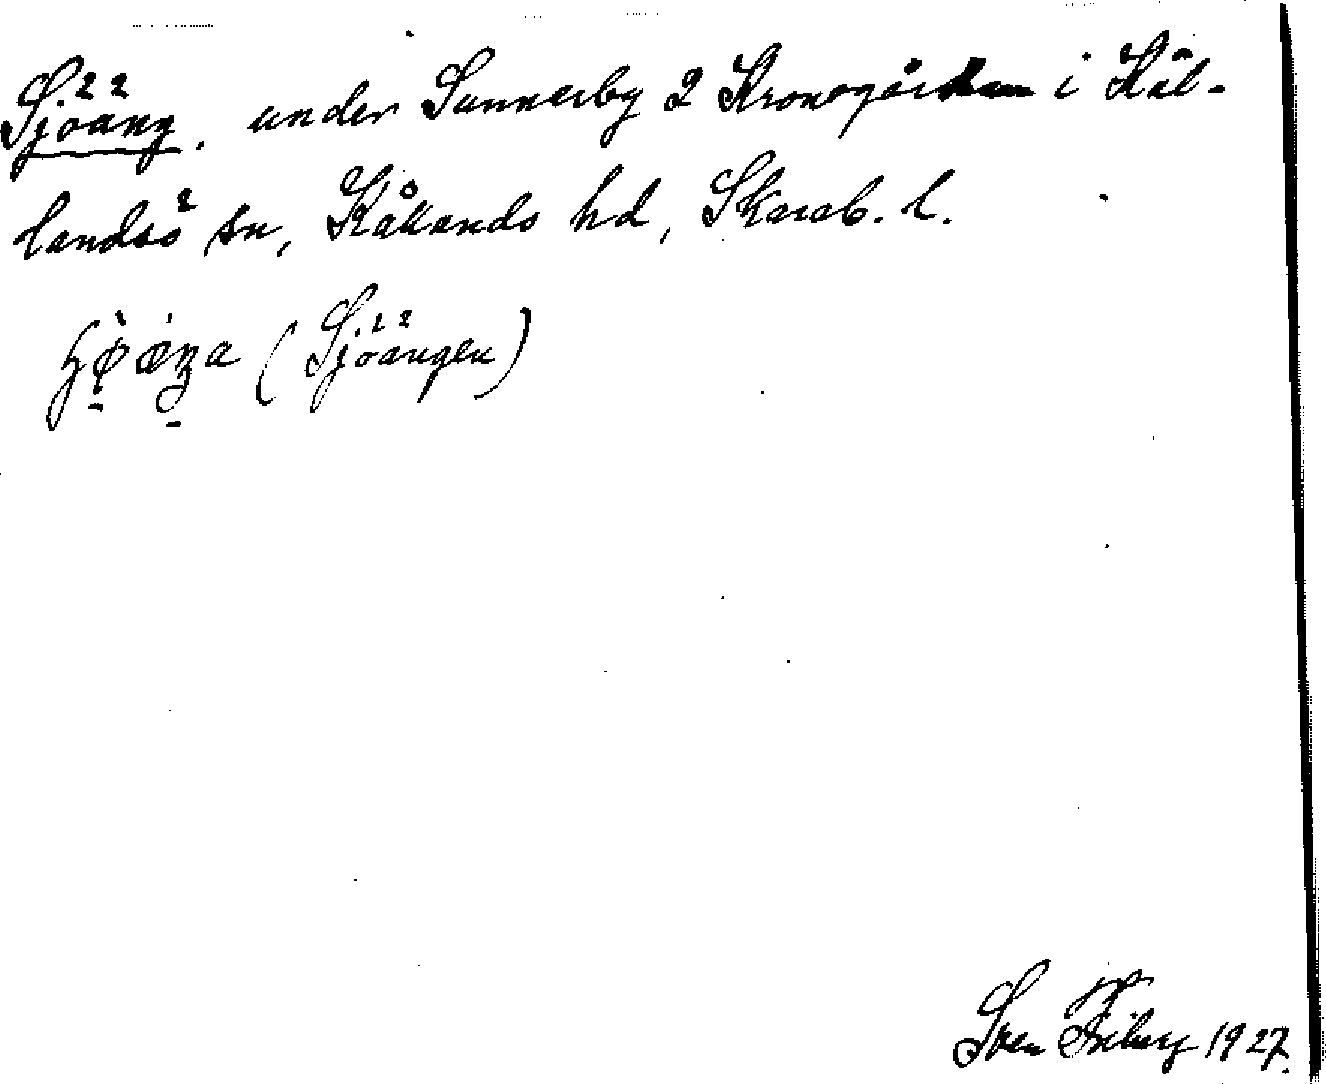 Sjöäng, under Sunnerby 2 Kronogården i Käl-
landsö sn, Kållands hd, Skarab. l.
(Sjöängen)
Sven Friberg 1927.